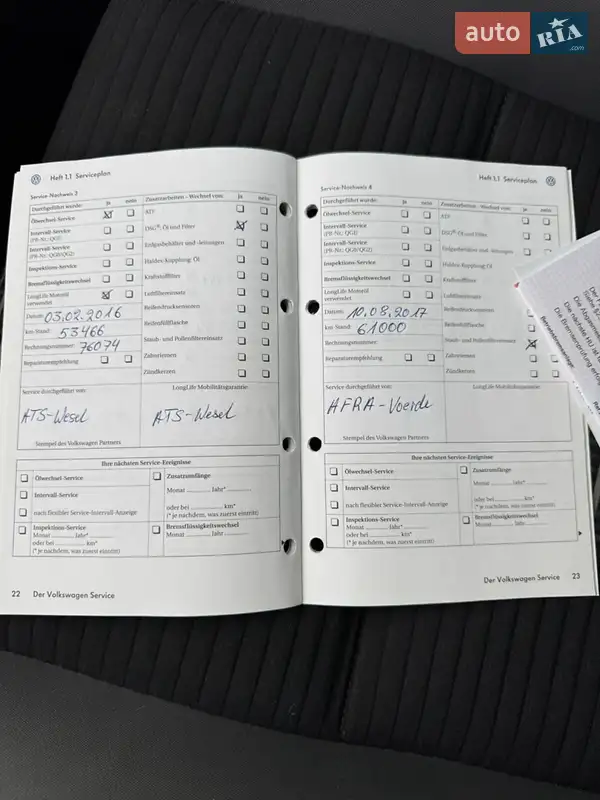 auto RIA .com
Heft 1.1 Serviceplan
Service-Nachweis 3
Durchgeführt wurde: ja nein
Ölwechsel-Service
Intervall-Service
(PR-Nr.: QG1)
Intervall-Service
(PR-Nr.: QG0/QG2)
Inspektions-Service
Bremsflüssigkeitswechsel
LongLife Motoröl
verwendet
Datum: 03.02.2016
km-Stand: 53466
Rechnungsnummer: 76074
Reparaturempfehlung
Zusatzarbeiten - Wechsel von: ja nein
ATF
DSG®, Öl und Filter
Erdgasbehälter und -leitungen
Haldex-Kupplung-Öl
Kraftstofffilter
Luftfiltereinsatz
Reifendrucksensoren
Reifenfüllflasche
Staub- und Pollenfiltereinsatz
Zahnriemen
Zündkerzen
Service durchgeführt von:
ATS-Wesel
Stempel des Volkswagen Partners
LongLife Mobilitätsgarantie:
ATS-Wesel
Ihre nächsten Service-Ereignisse
Ölwechsel-Service
Intervall-Service
nach flexibler Service-Intervall-Anzeige
Inspektions-Service
Monat ........... Jahr*
oder bei ........... km*
(* je nachdem, was zuerst eintritt)
Zusatzumfänge
Monat ........... Jahr*
oder bei ........... km*
(* je nachdem, was zuerst eintritt)
Bremsflüssigkeitswechsel
Monat ........... Jahr
22 Der Volkswagen Service
Heft 1.1 Serviceplan
Service-Nachweis 4
Durchgeführt wurde: ja nein
Ölwechsel-Service
Intervall-Service
(PR-Nr.: QG1)
Intervall-Service
(PR-Nr.: QG0/QG2)
Inspektions-Service
Bremsflüssigkeitswechsel
LongLife Motoröl
verwendet
Datum: 10.08.2017
km-Stand: 61000
Rechnungsnummer:
Reparaturempfehlung
Zusatzarbeiten - Wechsel von: ja nein
ATF
DSG®, Öl und Filter
Erdgasbehälter und -leitungen
Haldex-Kupplung-Öl
Kraftstofffilter
Luftfiltereinsatz
Reifendrucksensoren
Reifenfüllflasche
Staub- und Pollenfiltereinsatz
Zahnriemen
Zündkerzen
Service durchgeführt von:
AFRA-Voerde
Stempel des Volkswagen Partners
LongLife Mobilitätsgarantie:
Ihre nächsten Service-Ereignisse
Ölwechsel-Service
Intervall-Service
nach flexibler Service-Intervall-Anzeige
Inspektions-Service
Monat ........... Jahr*
oder bei ........... km*
(* je nachdem, was zuerst eintritt)
Zusatzumfänge
Monat ........... Jahr*
oder bei ........... km*
(* je nachdem, was zuerst eintritt)
Bremsflüssigkeitswechsel
Monat ........... Jahr
Der Volkswagen Service 23